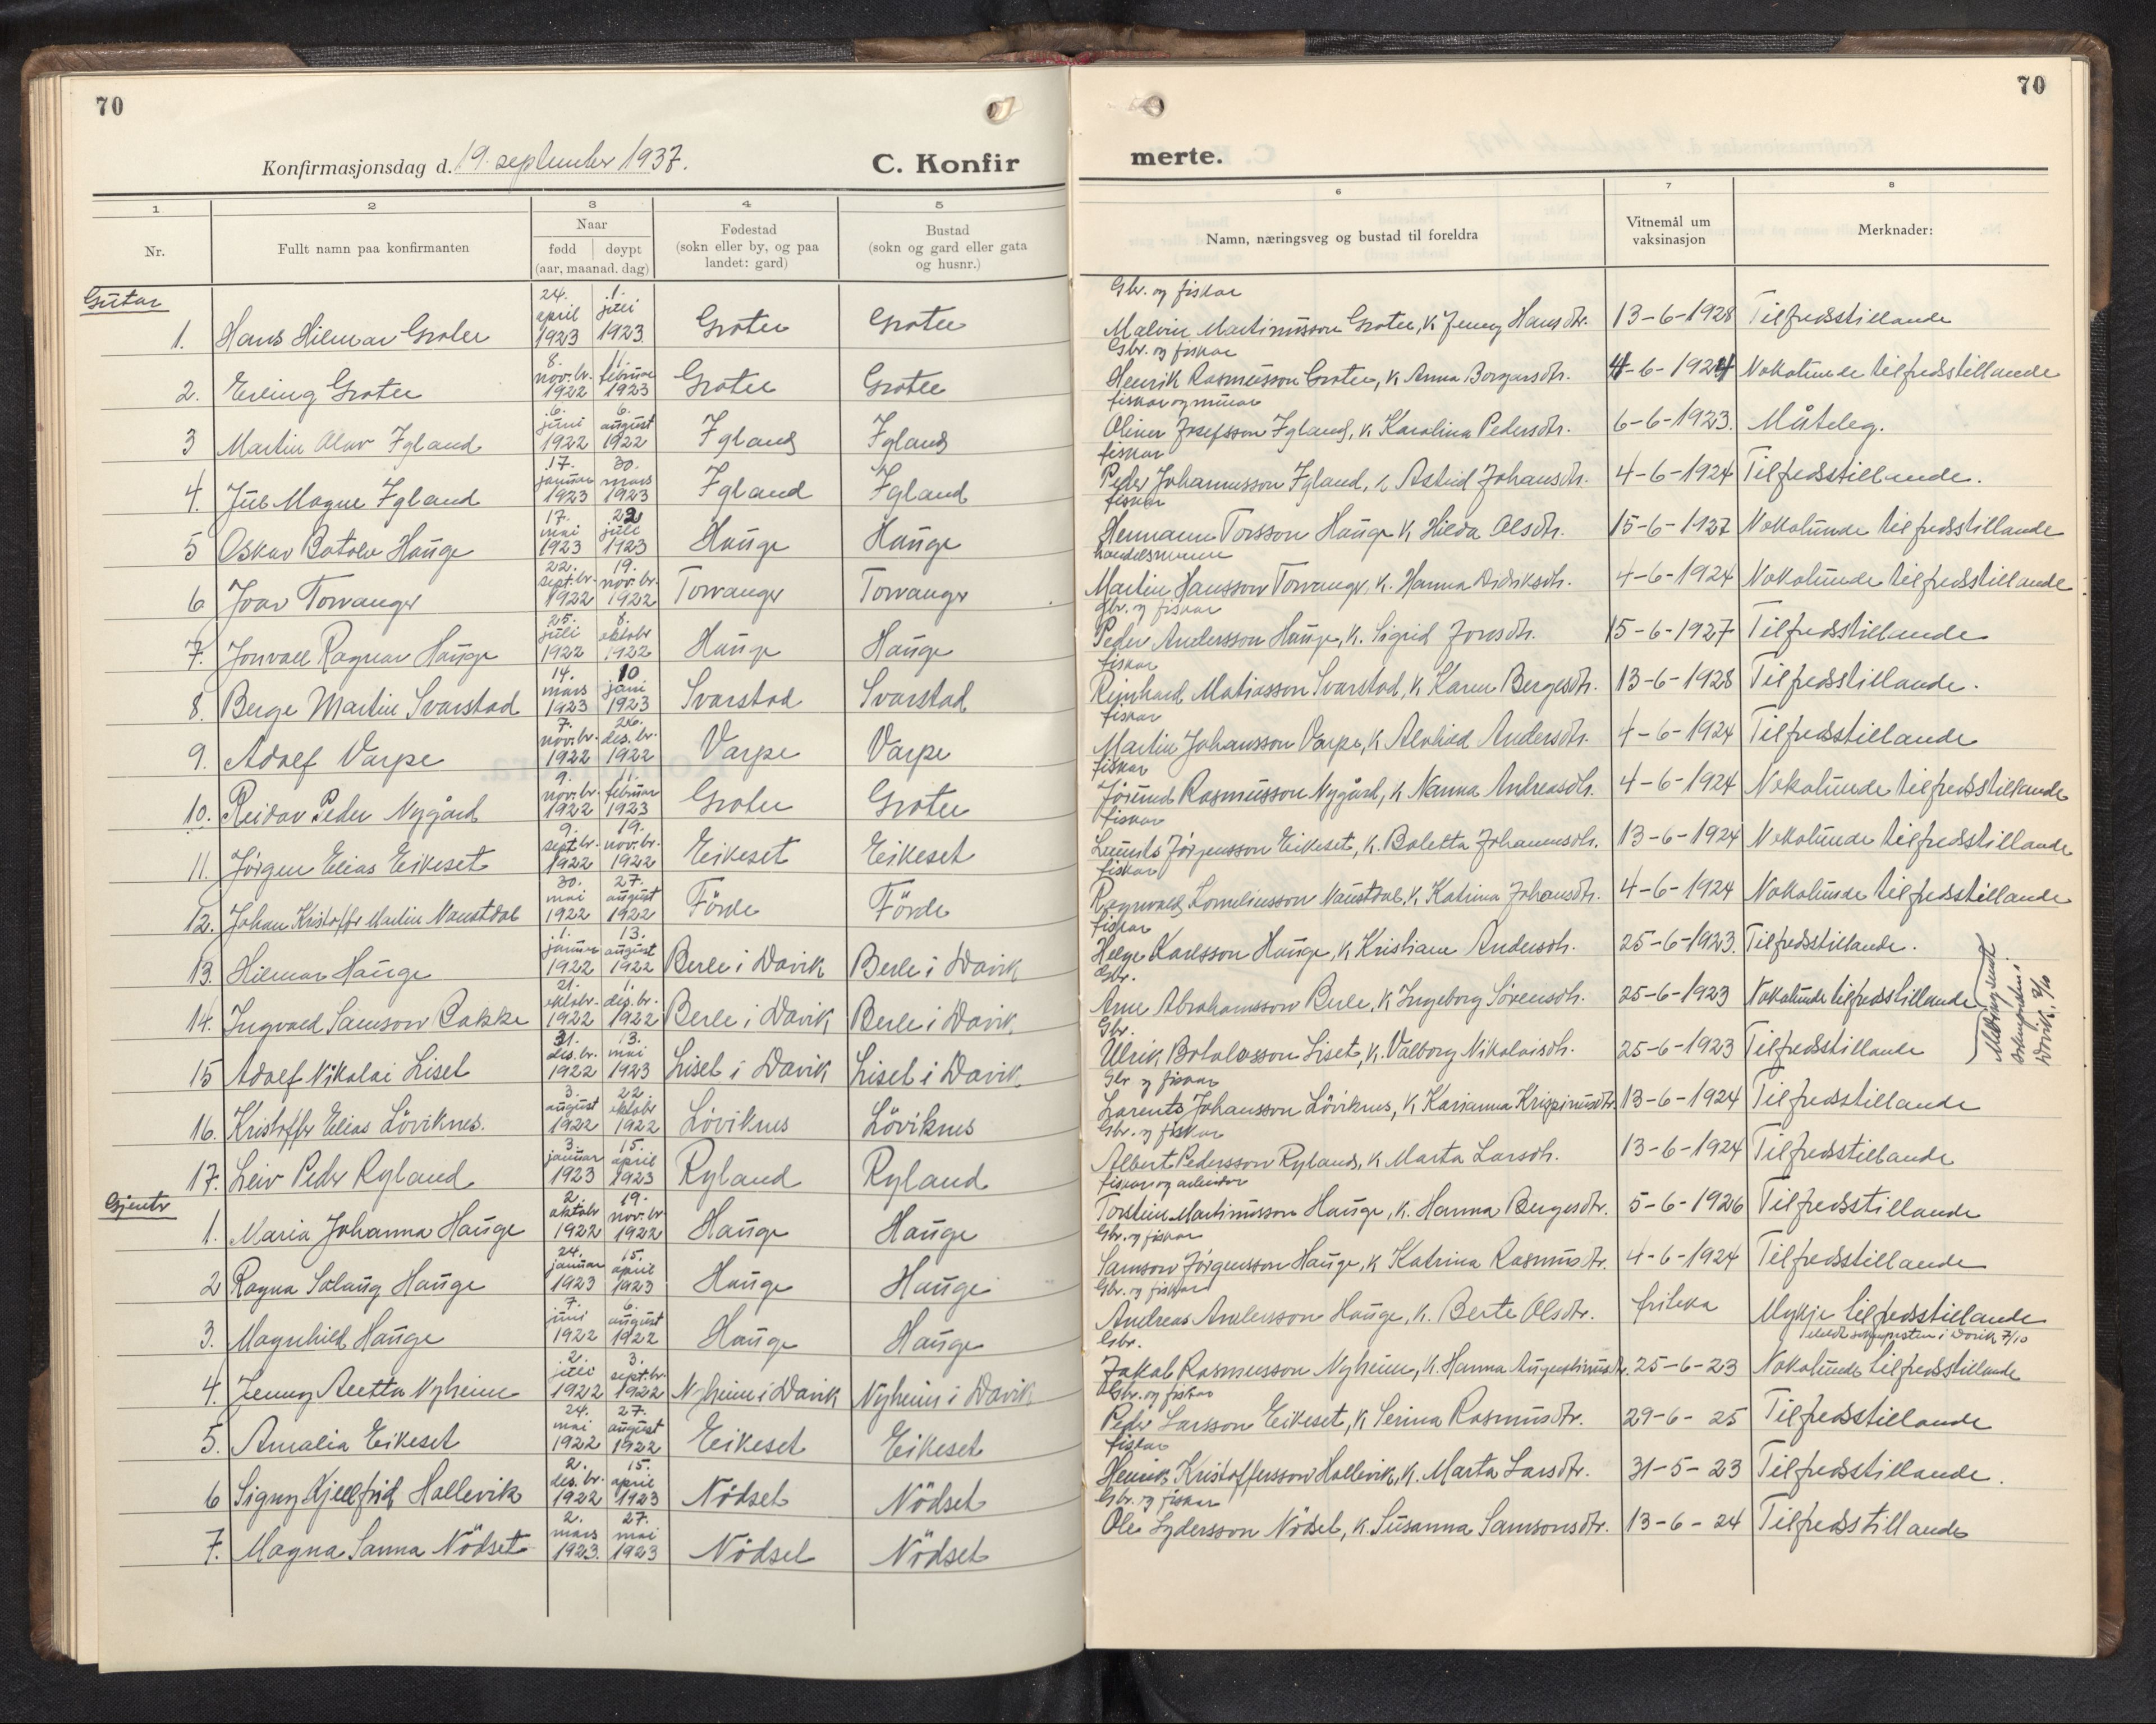 70
70
Konfirmasjonsdag d. 19. september 1937.
C. Konfir
merte.
1 2 3 4 5 6 7 8
Nr.
Fullt namn paa konfirmanten
Naar
fødd døypt
(aar, maanad. dag)
Fødestad
(sokn eller by, og paa
landet: gard)
Bustad
(sokn og gard eller gata
og husnr.)
Namn, næringsveg og bustad til foreldra
Vitnemål um
vaksinasjon
Merknader:
Gutar
1. Hans Hilmar Grotle 24. april 1923 1. juli 1923. Grotle Grotle Gbr. og fiskar Malvin Martinusson Grotle, k. Jenny Hansdtr. 13-6-1928 Tilfredsstillande
2. Erling Grotle 8. nov.br. 1922 11. februar 1923 Grotle Grotle Gbr. og fiskar Henrik Rasmusson Grotle, k. Anna 4-6-1924 Nokolunde tilfredsstillande
3 Martin Olav Igland 6. juni 1922 6. august 1922 Igland Igland fiskar og murar Oliver Josefsson Igland, k. Karolina Pedersdtr. 6-6-1923. Måteleg.
4. Jul Magne Igland 17. januar 1923 30. mars 1923 Igland Igland fiskar Peder Johannusson Igland, k Astrid Johansdtr. 4-6-1924 Tilfredsstillande.
5 Oskar Botolv Hauge 17. mai 1923 22 juli 1923 Hauge Hauge fiskar Hermann Torsson Hauge k. Hilda Olsdtr. 15-6-1927 Nokolunde tilfredsstillande
6 Joar Torvanger 22. sept.br. 1922 19. nov.br. 1922 Torvanger Torvanger handelsmann Martin Hansson Torvanger, k. Hanna Didriksdtr. 4-6-1924 Nokolunde tilfredsstillande
7. Jonvall Ragnar Hauge 25. juli 1922 8. oktobr 1922 Hauge Hauge Gbr. og fiskar Peder Andersson Hauge, k. Sigrid Jonsdtr. 15-6-1927 Tilfredsstillande
8. Berge Martin Svarstad 14. mars 1923 10 juni 1923 Svarstad Svarstad fiskar Reinhard Matiasson Svarstad, k Karen Bergesdtr. 13-6-1928 Tilfredsstillande.
9. Adolf Varpe 7. nov.br. 1922 26. des.br. 1922 Varpe Varpe fiskar Martin Johansson Varpe, k Alvhild Andersdtr. 4-6-1924 Tilfredsstillande
10. Reidar Peder Nygård 9. nov.br. 1922 11. februar 1923 Grotle Grotle fiskar Jørund Rasmusson Nygård, k Nanna Andreasdtr. 4-6-1924 Nokolunde tilfredsstillande
11. Jörgen Elias Eikeset 9. sept.br. 1922 19. nov.br. 1922 Eikeset Eikeset fiskar Jörgensson Eikeset, k. Boletta Johannsdtr. 13-6-1924 Nokolunde tilfredsstillande
12. Johan Kristoffer Martin Naustdal 30. mai 1922 27. august 1922 Förde Förde fiskar Ragnvald Korneliusson Naustdal, k. Katrina Johansdtr. 4-6-1924 Nokolunde tilfredsstillande
13. Hilmar Hauge 1. januar 1922 13. august 1922 Berle i Davik Berle i Davik fiskar Helge Karlsson Hauge, k Kristiane Andersdtr. 25-6-1923. Tilfredsstillande.
14. Ingvald Samson Bakke 21. oktobr. 1922 1. des.br. 1922 Berle i Davik Berle i Davik Gbr. Arne Abrahamsson Berle, k. Ingeborg Sörensdtr. 25-6-1923 Nokolunde tilfredsstillande.
15 Adolf Nikolai Liset 31. des.br. 1922 13. mai 1923 Liset i Davik Liset i Davik. Gbr. Ulrik Botolvsson Liset, k. Valborg Nikolaisdtr. 25-6-1923 Tilfredsstillande
Melding sendt soknepresten i Davik 2/10
16. Kristoffer Elias Löviknes. 3. august 1922 22. oktobr 1922 Löviknes Löviknes Gbr og fiskar Lorents Johansson Löviknes, k. Karianna Krispinusdtr. 13-6-1924 Tilfredsstillande
17. Leiv Peder Rylaud 3. januar 1923 15. april 1923 Ryland Ryland Gbr. og fiskar Albert Pedersson Ryland, k. Marta Larsdtr. 13-6-1924 Tilfredsstillande
Gjentr
1. Maria Johanna Hauge 2. oktobr 1922 19. nov.br 1922 Hauge Hauge fiskar og arbeidar Torstein Martinusson Hauge, k. Hanna Bergesdtr. 5-6-1926 Tilfredsstillande
2 Ragna Solaug Hauge 24. januar 1923 15. april 1923 Hauge Hauge Gbr. og fiskar Samson Jörgensson Hauge, k Katrina Rasmusdtr. 4-6-1924 Tilfredsstillande
3. Magnhild Hauge 7. juni 1922 6. august 1922 Hauge Hauge Gbr. og fiskar Andreas Andersson Hauge, k. Berte Olsdtr. friteka Mykje tilfredsstillande
4. Jenny Aletta Nyheim 2. juli 1922 3. sept.br. 1922 Nyheim i Davik Nyheim i Davik Gbr. Jakob Rasmusson Nyheim, k. Hanna Augustinusdtr. 25-6-23 Meldt soknepresten i Davik 7/10 Nokolunde tilfredsstillande
5. Amalia Eikeset 24. mai 1922 27. august 1922 Eikeset Eikeset Gbr. og fiskar Peder Larsson Eikeset, k Serina Rasmusdtr. 29-6-25 Tilfredsstillande
6 Signy Kjellfrid Hollevik 2. des.br. 1922 15. april 1923 Nödset Nödset fiskar Henrik Kristoffersson Hollevik, k. Marta Larsdtr. 31-5-23 Tilfredsstillande.
7. Magna Sanna Nödset 2. mars 1923. 27. mai 1923 Nödset Nödset Gbr. og fiskar Ole Lydersson Nödset, k. Susanna Samsonsdtr. 13-6-24 Tilfredsstillande